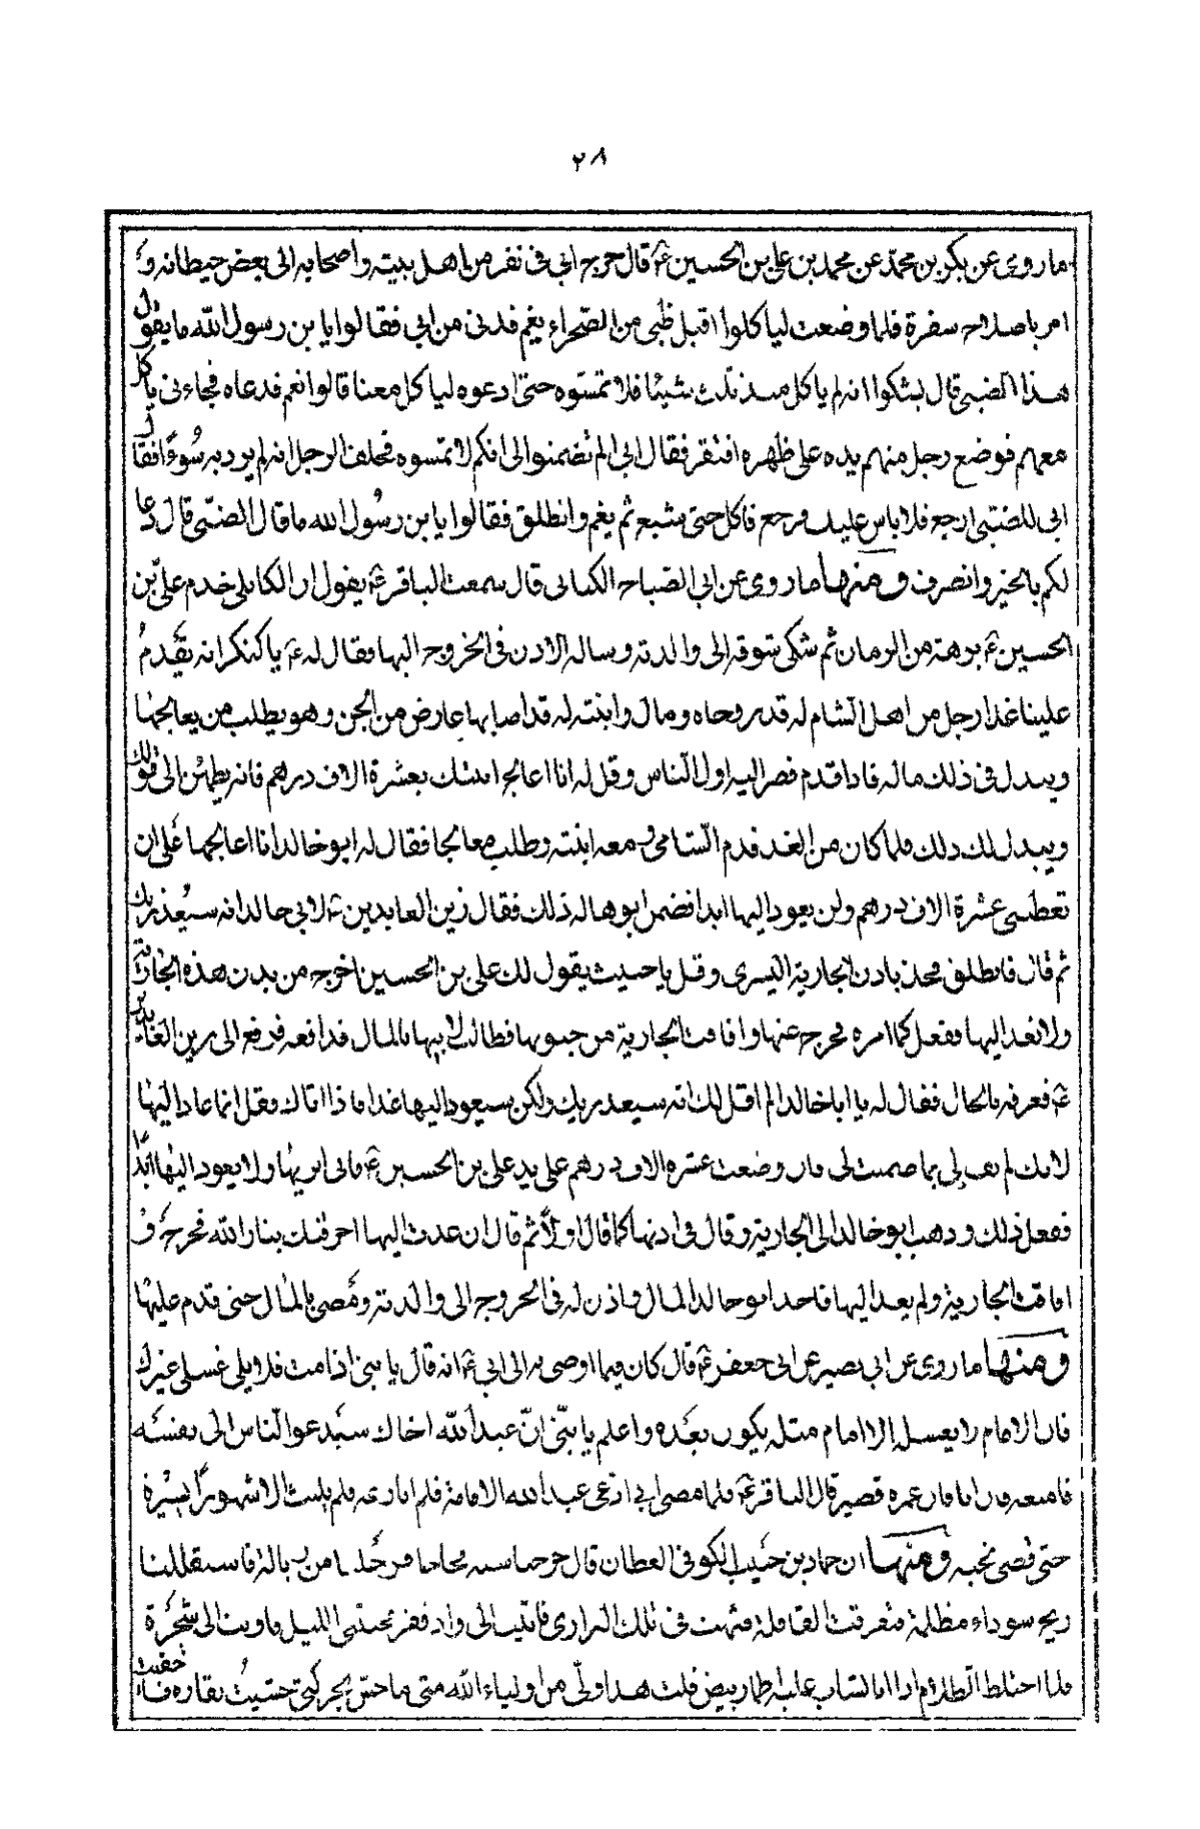 ٢٨
ما روى عن بكر بن محمد عن محمد بن على بن الحسين ع قال خرج ابى فى نفر من اهل بيته واصحابه الى بعض حيطانه و
امر باصلاح سفرة فلما وضعت لياكلوا اقبل ظبى من الصحراء يبغم فدنى من ابى فقالوا يا بن رسول الله ما يقول
هذا الضبى قال يشكوا انه لم ياكل منذ ثلث شيئا فلا تمسوه حتى ادعوه لياكل معنا قالوا نعم فدعاه فجاءنى ياكل
معهم فوضع رجل منهم يده على ظهره افنقر فقال ابى الم تضمنوا الى انكم لا تمسوه فحلف الرجل انه لم يرد به سوءا فقال
ابى للضبى ارجع فلا باس عليك فرجع فاكل حتى شبع ثم يغم وانطلق فقالوا يا بن رسول الله ما قال الضبى قال دعا
لكم بالخير وانصرف ومنها ما روى عن ابى الصباح الكنانى قال سمعت الباقر ع يقول ان الكابلى خدم على بن
الحسين ع بوهة من الزمان ثم شكى شوقه الى والدته وساله الاذن فى الخروج اليها فقال له ع يا كنكر انه يقدم
علينا غدا رجل من اهل الشام له قدر وجاه ومال وابنته له قد اصابها عارض من الجن وهو يطلب من يعالجها
ويبدل فى ذلك ماله فاذا قدم فصر اليه اول الناس وقل له انا اعالج ابنتك بعشرة الاف درهم فانه يطمئن الى قولك
ويبدل لك ذلك فلما كان من الغد قدم الشامى ومعه ابنته وطلب معالجا فقال له ابو خالد انا اعالجها على ان
تعطينى عشرة الاف درهم ولن يعود اليها ابدا فضمن ابوها له ذلك فقال زين العابدين ع لابى خالد انه سيغدر بك
ثم قال فانطلق فخذ باذن الجارية اليسرى وقل يا خبيث يقول لك على بن الحسين اخرج من بدن هذه الجارية
ولا تعد اليها ففعل كما امره فخرج عنها وافاقت الجارية من جنونها فطالب لابيها بالمال فدافعه فرجع الى زين العابدين
ع فعرفه بالحال فقال له يا ابا خالد الم اقل لك انه سيغدر بك ولكن سيعود اليها غدا فاذا اتاك فقل انما عاد اليها
لانك لم تف لى بما ضمنت لى فان وضعت عشرة الاف درهم على يد على بن الحسين ع فانى ابريها ولا يعود اليها ابدا
ففعل ذلك وذهب ابو خالد الى الجارية وقال فى اذنها كما قال اولا ثم قال ان عدت اليها احرقتك بنار الله فخرج و
افاقت الجارية ولم يعد اليها فاخذ ابو خالد المال فاذن له فى الخروج الى والدته ومضى بالمال حتى قدم عليها
ومنها ما روى عن ابى بصير عن ابى جعفر ع قال كان فيما اوصى به الى ابى ع انه قال يا بنى اذا مت فلا يلى غسلى غيرك
فان الامام لا يغسله الا امام مثله يكون بعده واعلم يا بنى ان عبد الله اخاك سيدعو الناس الى نفسه
فامنعه فان ابا فان عمره قصير قال الباقر ع فلما مضى ابى ادعى عبد الله الامامة فلم انازعه فلم يلبث الا شهورا يسيرة
حتى قضى نحبه ومنها ان حماد بن حبيب الكوفى العطان قال خرجنا سنة حجاجا فرحلنا من زبالة فاستقبلتنا
ريح سوداء مظلمة فتفرقت القافلة فتهت فى تلك البرارى فانتهيت الى واد قفر فجننى الليل فاويت الى شجرة
فلما اختلط الظلام اذا انا بشاب عليه اطمار بيض قلت هذا ولى من اولياء الله متى ما حس بحركتى خشيت نفاره فاخفيت